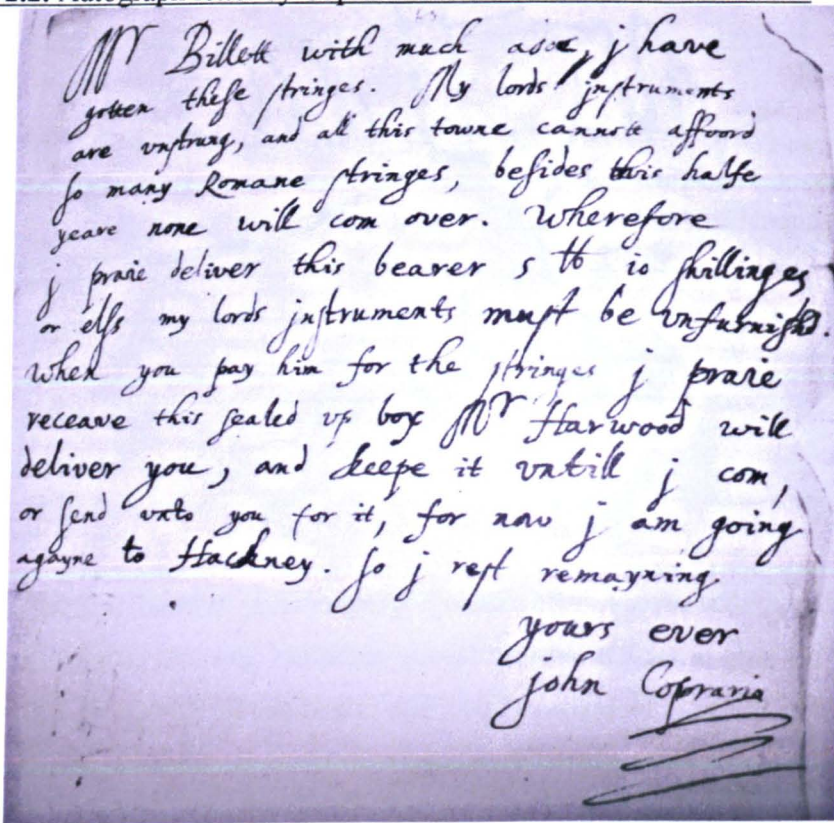 Mr Billett with much adoe, j have
gotten these stringes. My lords jnstruments
are vnstrung, and all this towne cannott affoord
so many Romane stringes, besides this halfe
yeare none will com over. Wherefore
j praie deliver this bearer 5 tt io shillinges
or elss my lords jnstruments must be vnfurnishd.
when you pay him for the stringes j praie
receave this sealed vp box Mr Harwood will
deliver you, and keepe it vntill j com,
or send vnto you for it, for now j am going
agayne to Hackney. so j rest remayning
yours ever
john Coprario